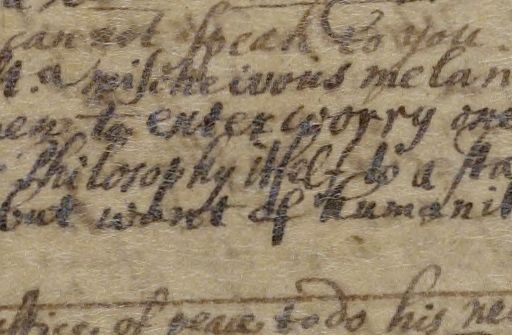 cannot speak to you
a mischeivous melan
to enter worry one
Philosophy itself to a sta
but want of humanit
ustice of peace to do his ne